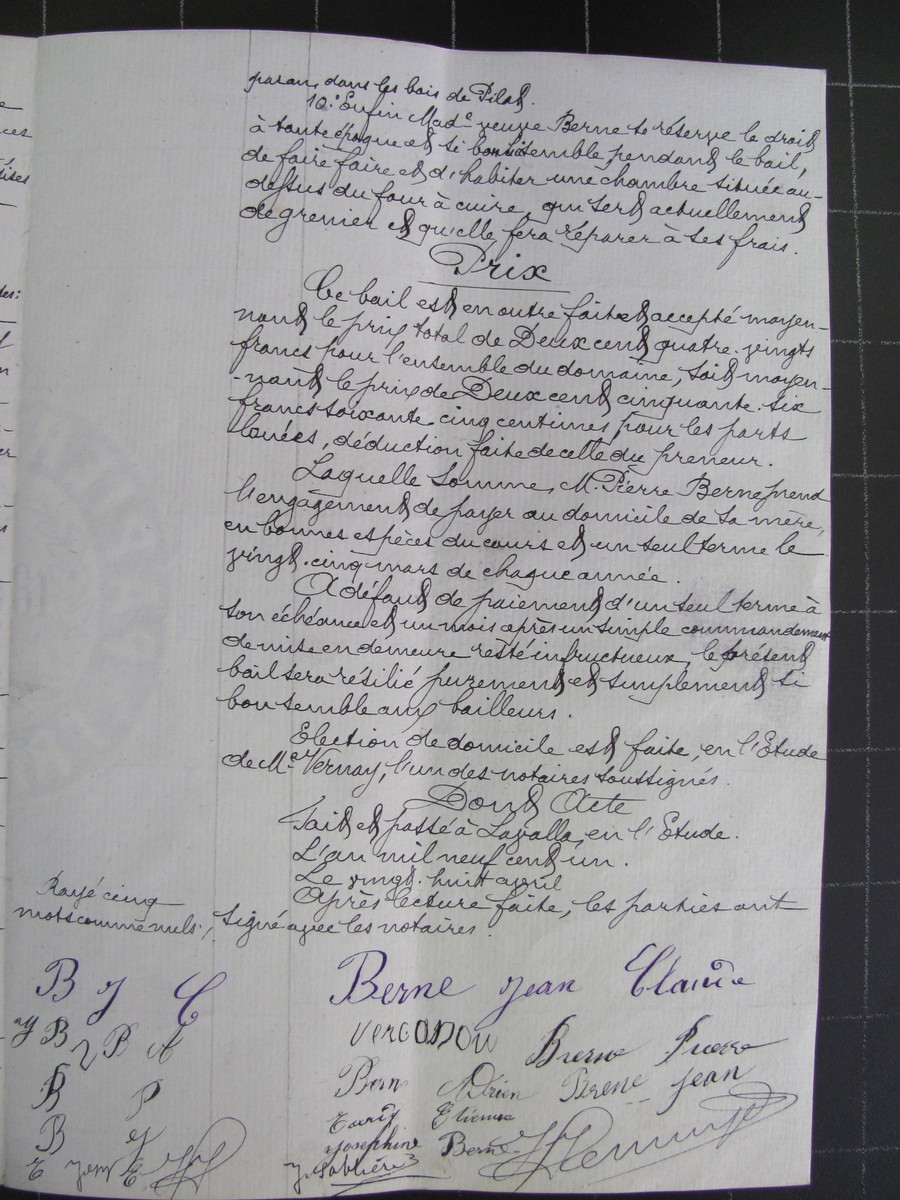 paran, dans les bois de Pilat.
10° Enfin Madᵉ veuve Berne se réserve le droit
à toute époque et si bon lui semble pendant le bail,
de faire faire et d'habiter une chambre située au-
dessus du four à cuire, qui sert actuellement
de grenier et qu'elle fera réparer à ses frais.
Prix
Ce bail est en outre fait et accepté moyen-
nant le prix total de Deux cent quatre-vingts
francs pour l'ensemble du domaine, soit moyen-
-nant le prix de Deux cent cinquante-six
francs soixante-cinq centimes, pour les parts
louées, déduction faite de celle du preneur.
Laquelle somme, M. Pierre Berne prend
l'engagement de payer au domicile de sa mère,
en bonnes espèces du cours et un seul terme le
vingt-cinq mars de chaque année.
A défaut de paiement d'un seul terme à
son échéance et un mois après un simple commandement
de mise en demeure resté infructueux, le présent
bail sera résilié purement et simplement si
bon semble aux bailleurs.
Election de domicile est faite, en l'Etude
de Mᵉ Vernay, l'un des notaires soussignés.
Dont Acte
Fait et passé à Lavalla, en l'Etude.
L'an mil neuf cent un.
Le vingt-huit avril
Après lecture faite, les parties ont
signé avec les notaires.
Rayé cinq
mots comme nuls.
B J C
Berne Jean Claude
B P A
Berne Pierre
B P
Adrien Jean
B J
Etienne
Josephine Berne
J. Sabliere